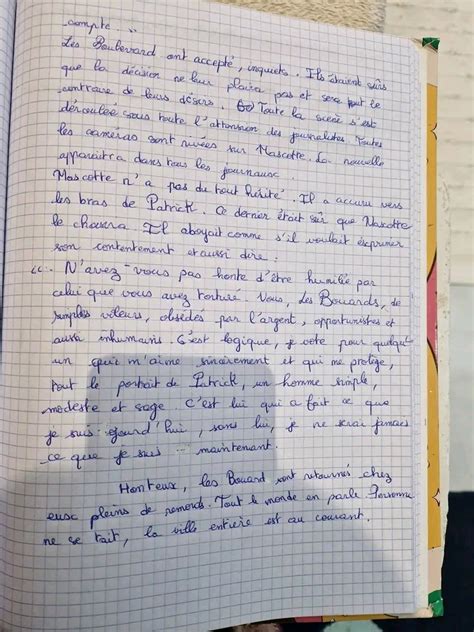 compte...
Les Boulevard ont accepté, inquets. Ils étaient sûrs
que la décision ne leur plaira pas et sera tout le
contraire de leurs désirs. Toute la sucée s'est
déroulée sous toute l'attension des journalistes. Toutes
les caméras sont rivées sur Mascotte. La nouvelle
apparaîtra dans tous les journaux.
Mascotte n'a pas du tout hésité. Il a accuru vers
les bras de Patrick. Ce dernier était sûr que Mascotte
le choisira. Il aboyait comme s'il voulait exprimer
son contentement et aussi dire :
"- N'avez-vous pas honte d'être humilié par
celui que vous avez torturé. Vous, les Bouards, de
simples voleurs, obsédés par l'argent, opportunistes et
aussi inhumains. C'est logique, je vote pour quelqu'-
un qui m'aime sincèrement et qui me protège,
tout le portrait de Patrick, un homme simple,
modeste et sage. C'est lui qui a fait ce que
je suis ajourd'hui, sans lui, je ne serai jamais
ce que je suis maintenant.
Honteux, les Bouard sont retournés chez
eux pleins de remords. Tout le monde en parle. Personne
ne se tait, la ville entière est au courant.